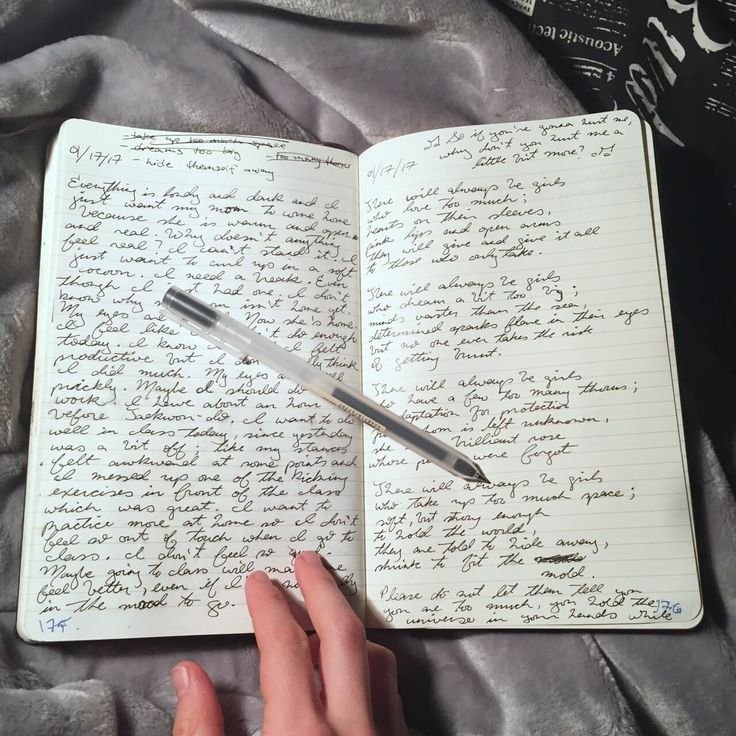 - take up too much space
- dreams too big
- too many thorns
- hide themself away
01/17/17
Everything is lonely and dark and I
just want my mom to come home
because she is warm and open
and real. Why doesn't anything
feel real? I can't stand it. I
just want to curl up in a soft
cocoon. I need a break. Even
though I just had one. I don't
know why mom isn't home yet.
My eyes are Now she's home.
I feel like I didn't do enough
today. I know I felt
productive but I don't really think
I did much. My eyes feel
prickly. Maybe I should do
work. I have about an hour
before Taekwon-do. I want to do
well in class today, since yesterday
was a bit off; like my stances
felt awkward at some points and
I messed up one of the kicking
exercises in front of the class
which was great. I want to
practice more at home so I don't
feel so out of touch when I go to
class. I don't feel so good.
Maybe going to class will make me
feel better, even if I'm not really
in the mood to go.
175
So if you're gonna hurt me,
why don't you hurt me a
little bit more?
01/17/17
There will always be girls
who love too much;
hearts on their sleeves,
pink lips and open arms
they will give and give it all
to those who only take.
There will always be girls
who dream a bit too big;
minds vaster than the sea,
determined sparks flare in their eyes
but no one ever takes the risk
of getting burnt.
There will always be girls
who have a few too many thorns;
adaptation for protection
from whom is left unknown,
she is a brilliant rose
whose petals were forgot
There will always be girls
who take up too much space;
soft, but strong enough
to hold the world,
they are told to hide away,
shrink to fit the
mold.
Please do not let them tell you
you are too much, you hold the
universe in your hands while
176
Acoustic tech